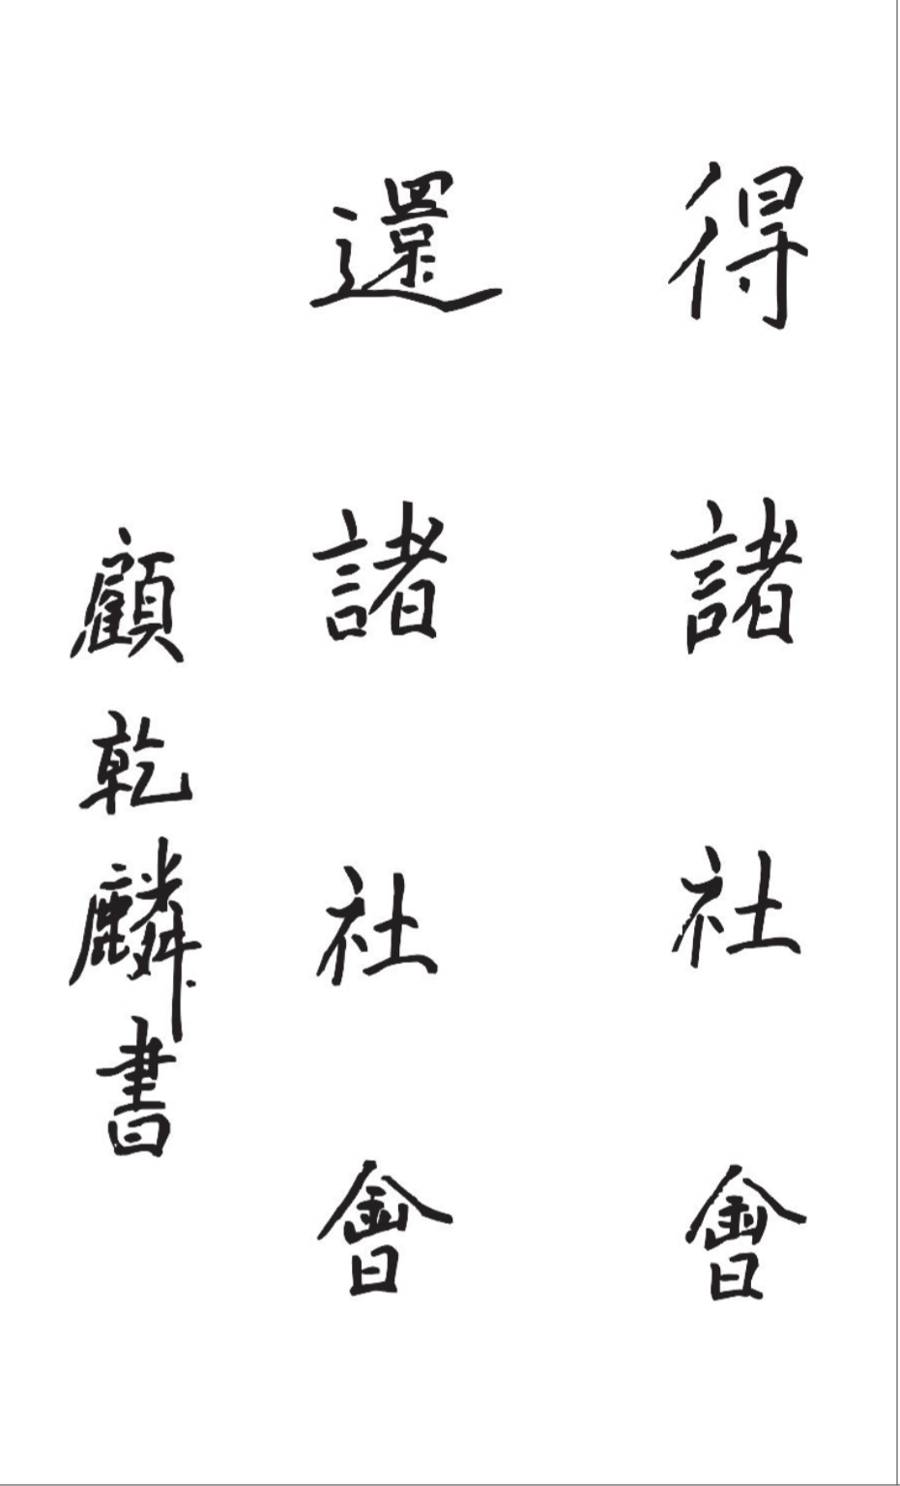 得諸社會
還諸社會
顧乾麟書